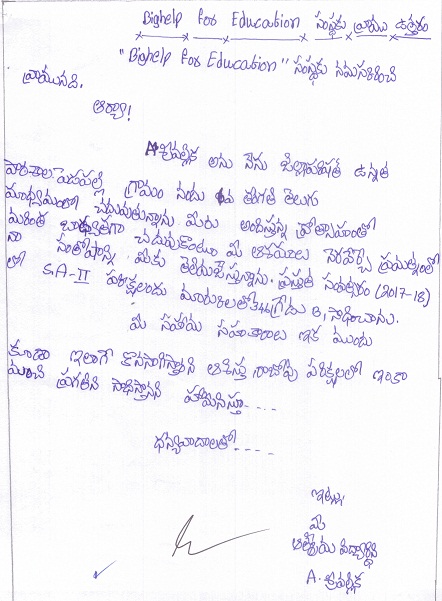 Bighelp for Education సంస్థకు వ్రాయు ఉత్తరం
"Bighelp for Education" సంస్థకు నమస్కరించి
వ్రాయునది.
ఆర్యా!
A శ్రీవల్లిక అను నేను జిల్లాపరిషత్ ఉన్నత
పాఠశాల పెదపల్లి గ్రామం నందు వ తరగతి తెలుగు
మాధ్యమంలో చదువుతున్నాను మీరు అందిస్తున్న ప్రోత్సాహంతో
మరింత బాధ్యతగా చదువుకుంటూ మీ ఆశయాలు నెరవేర్చే ప్రయత్నంలో
నా సంతోషాన్ని మీకు తెలియజేస్తున్నాను. ప్రస్తుత సంవత్సరం (2017-18)
లో SA-II పరీక్షలందు మార్కులతో 344 గ్రేడు B, సాధించాను.
మీ సహాయ సహకారాలు ఇక ముందు
కూడా ఇలాగే కొనసాగిస్తారని ఆశిస్తు రాబోవు పరీక్షలలో ఇంకా
మంచి ప్రగతిని సాధిస్తానని హామినిస్తూ....
ధన్యవాదాలతో.....
ఇట్లు
మీ
ఆత్మీయ విద్యార్థిని
A. శ్రీవల్లిక